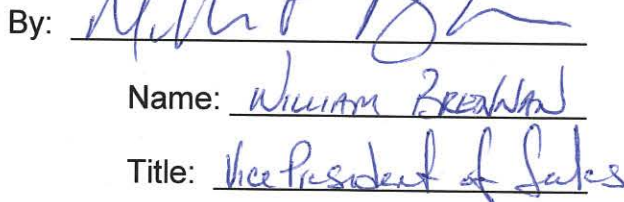 By:
Name: WILLIAM BRENNAN
Title: Vice President of Sales